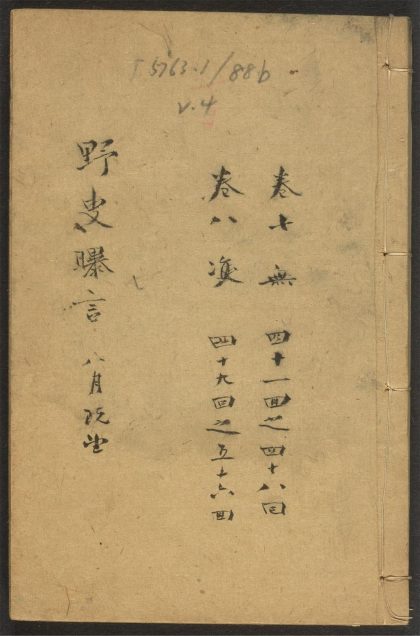 T 5763.1/88b
v.4
卷七 無 四十一回之四十八回
卷八 雙 四十九回之五十六回
野叟曝言 八月